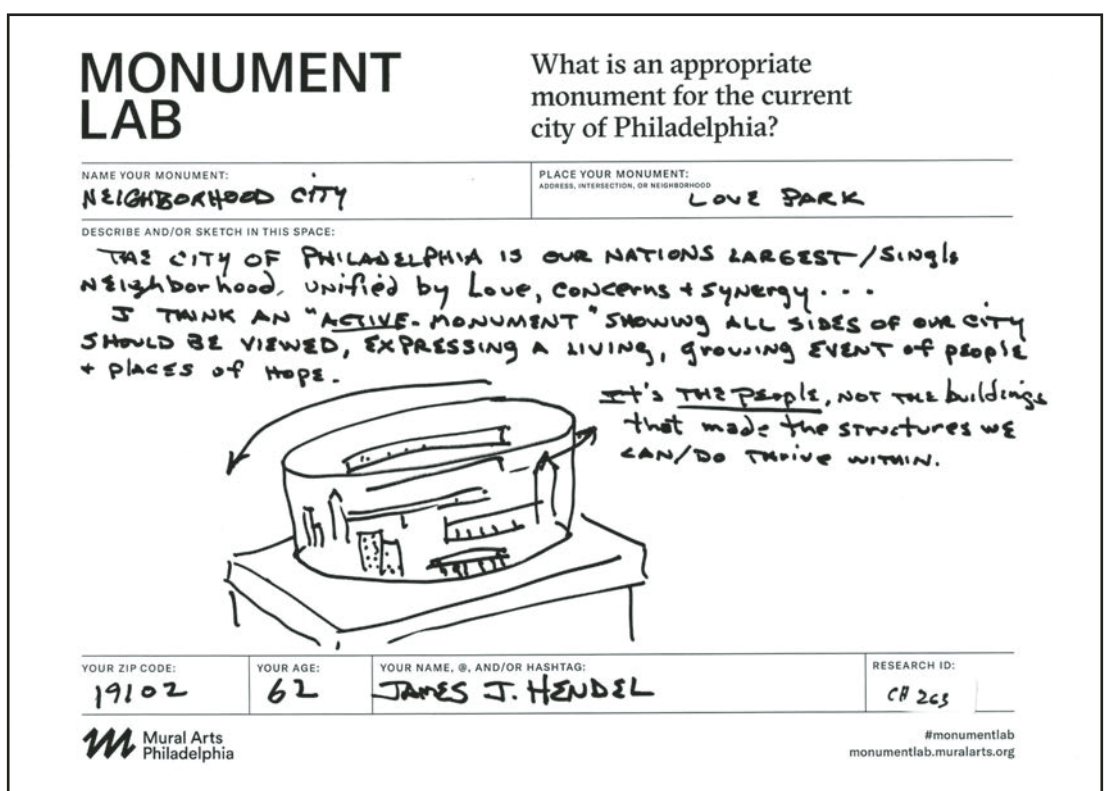 MONUMENT
LAB
What is an appropriate
monument for the current
city of Philadelphia?
NAME YOUR MONUMENT:
NEIGHBORHOOD CITY
PLACE YOUR MONUMENT:
ADDRESS, INTERSECTION, OR NEIGHBORHOOD
LOVE PARK
DESCRIBE AND/OR SKETCH IN THIS SPACE:
THE CITY OF PHILADELPHIA IS OUR NATIONS LARGEST/Single
Neighborhood, unified by Love, concerns + synergy...
I THINK AN "ACTIVE-MONUMENT" SHOWING ALL SIDES OF OUR CITY
SHOULD BE VIEWED, EXPRESSING A LIVING, growing EVENT of people
+ PLACES of HOPE.
It's THE People, NOT THE buildings
that made the STRUCTURES WE
CAN/DO THRIVE WITHIN.
YOUR ZIP CODE:
19102
YOUR AGE:
62
YOUR NAME, @, AND/OR HASHTAG:
JAMES J. HENDEL
RESEARCH ID:
CH 263
Mural Arts
Philadelphia
#monumentlab
monumentlab.muralarts.org